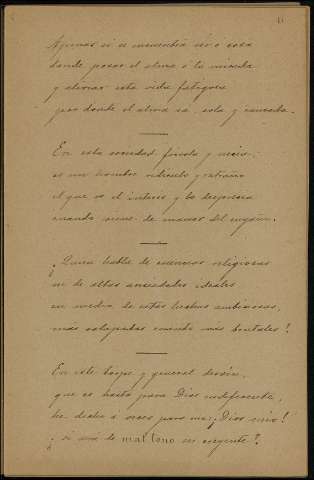 Apenas si se encuentra ser o cosa
donde posar el alma ó la mirada
y elevar esta vida fatigosa
por donde el alma va sola y cansada.
En esta sociedad frívola y necia,
es un hombre ridículo y extraño
el que ve el interés y lo desprecia
cuando viene de manos del engaño.
¡Quien hable de creencias religiosas
ni de altas ansiedades ideales
en medio de estas luchas ambiciosas,
más solapadas cuando más brutales!
En este torpe y general desvío,
que es hasta para Dios indiferente,
he dicho á veces para mí: ¡Dios mío!
¿si será de mal tono ser creyente?